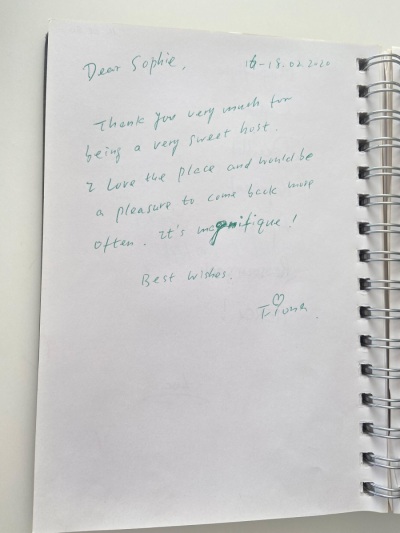 Dear Sophie, 16-18.02.2020
Thank you very much for
being a very sweet host.
I love the place and would be
a pleasure to come back more
often. It's magnifique!
Best wishes.
Fiona.